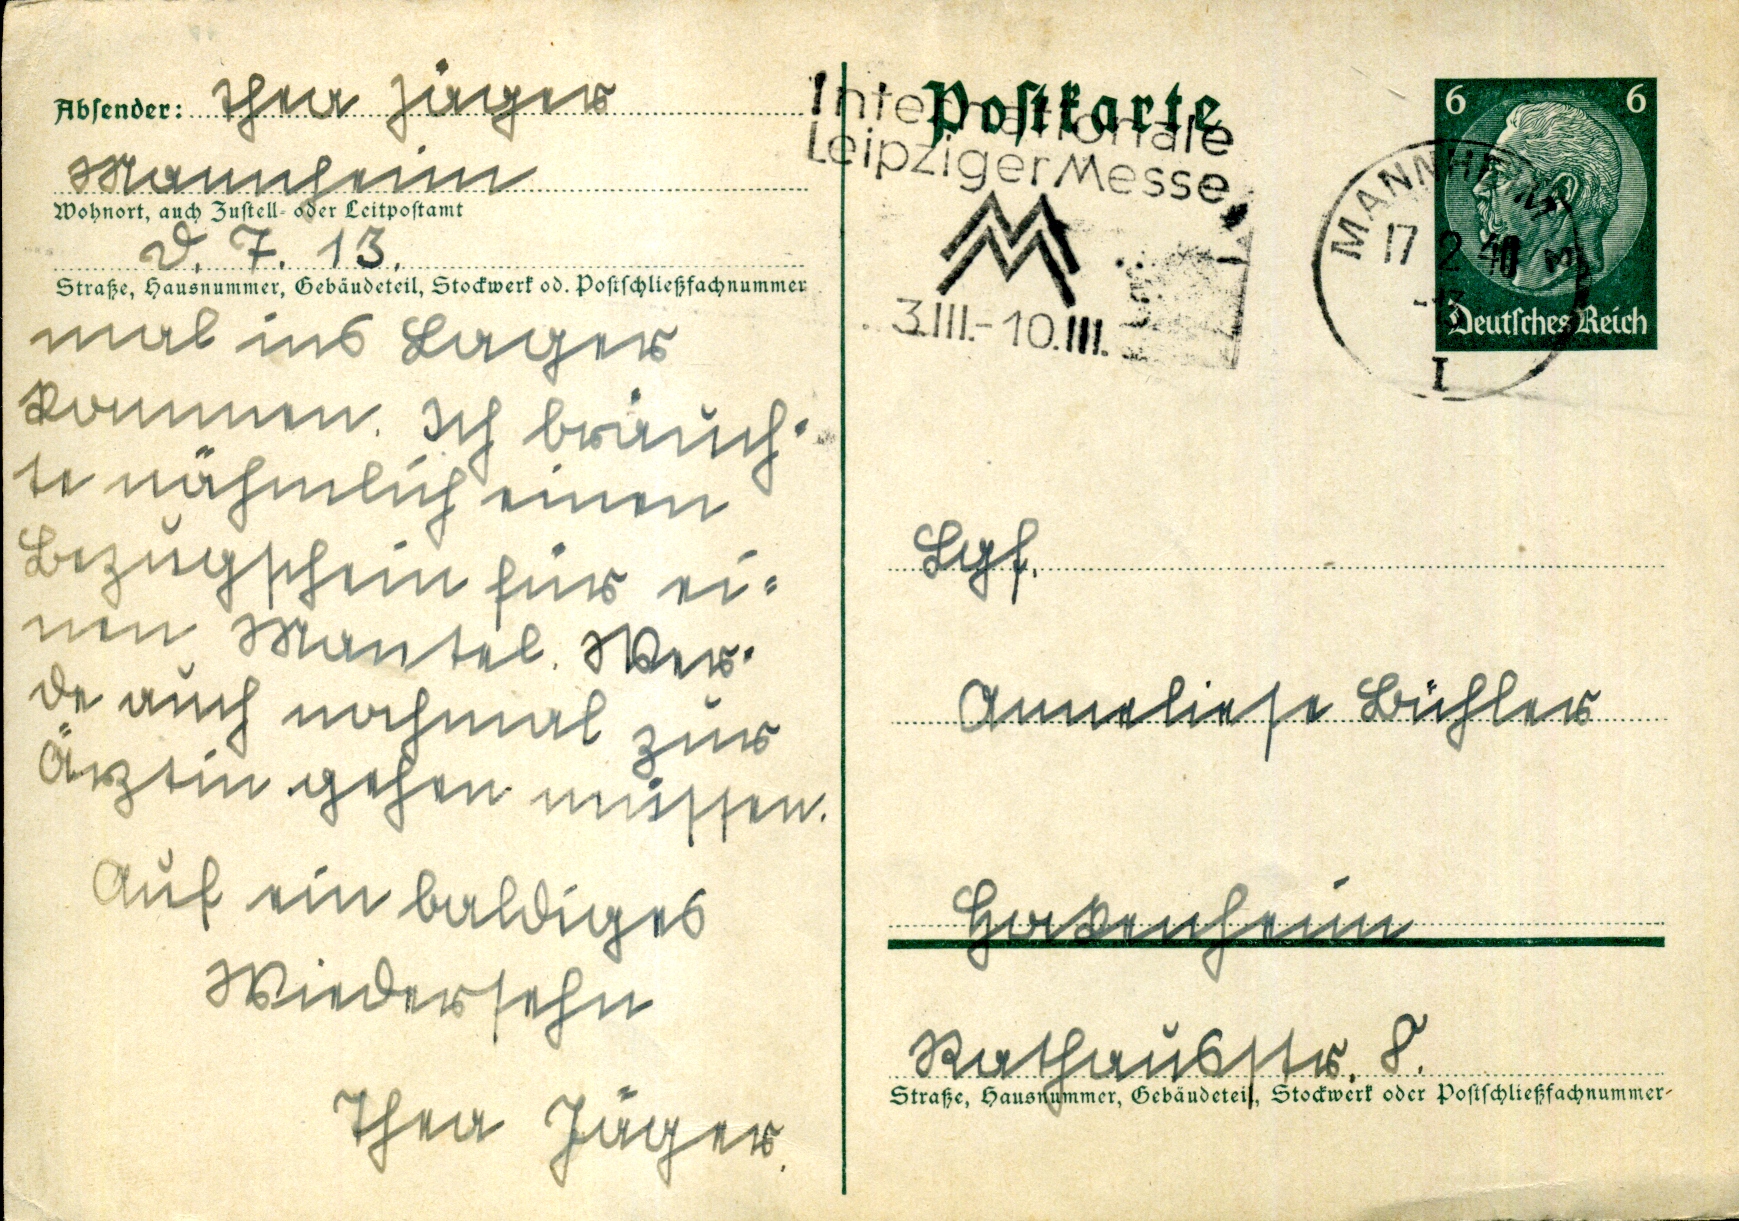 Absender: Thea Jäger
Mannheim
Wohnort, auch Zustell- oder Leitpostamt
D. 7. 13.
Straße, Hausnummer, Gebäudeteil, Stockwerk od. Postschließfachnummer
mal ins Lager
kommen. Ich bräuch-
te nähmlich einen
Bezugschein für ei-
nen Mantel. Wer-
de auch nochmal zur
Ärztin gehen müssen.
Auf ein baldiges
Wiedersehn
Thea Jäger.
Postkarte
Internationale
Leipziger Messe
3.III.-10.III.
MANNHEIM
17 2 40
I
6 6
Deutsches Reich
Lgf.
Anneliese Bühler
Hockenheim
Rathausstr. 8.
Straße, Hausnummer, Gebäudeteil, Stockwerk oder Postschließfachnummer